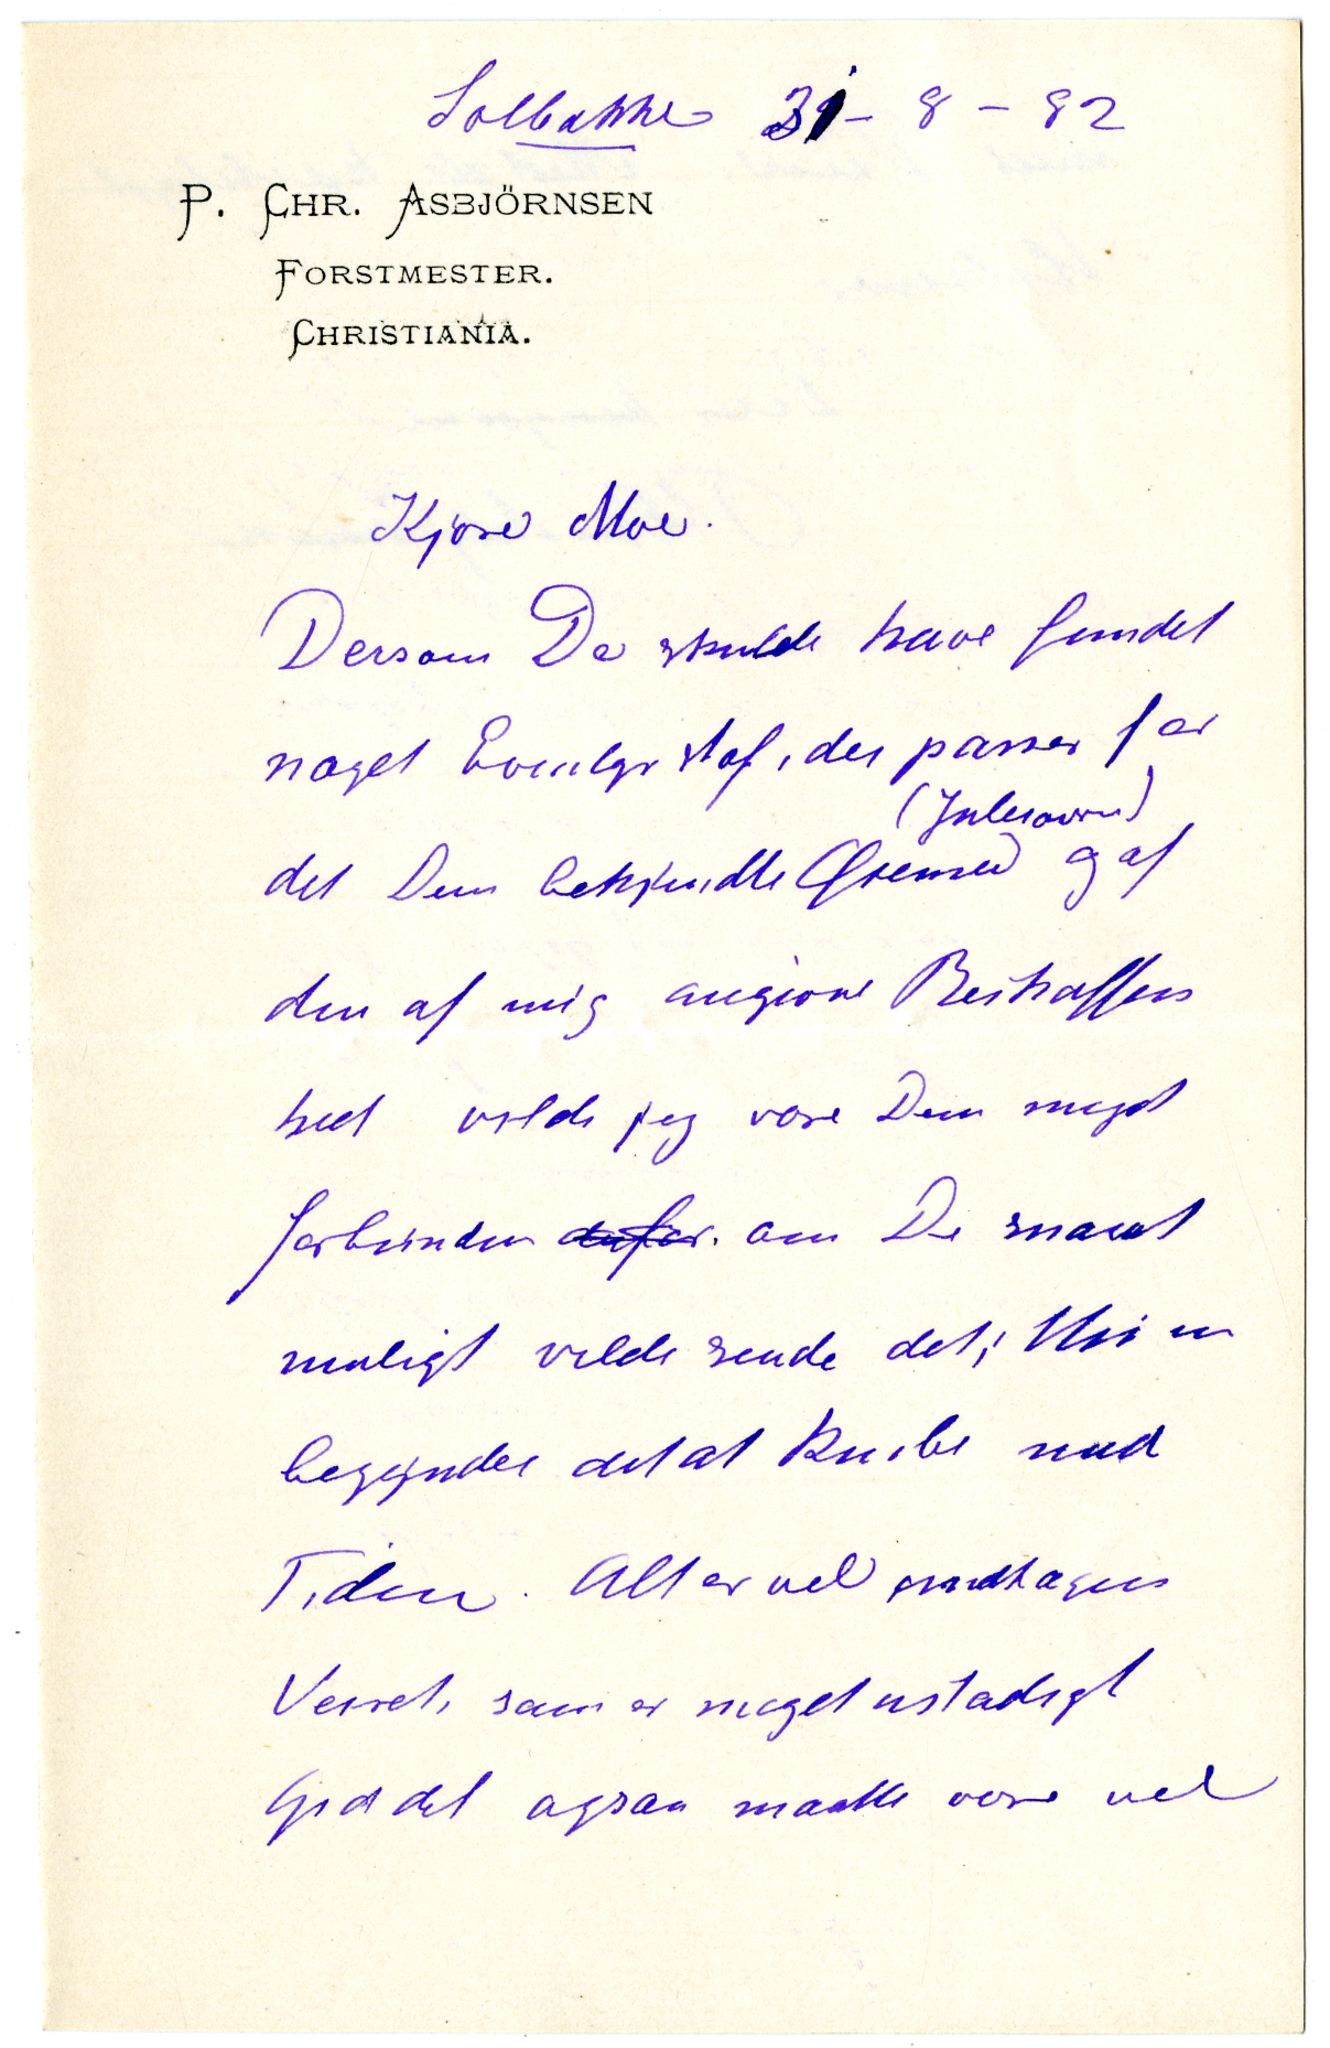 Solbakke 31 - 8 - 82
P. CHR. ASBJÖRNSEN
FORSTMESTER.
CHRISTIANIA.
Kjære Moe.
Dersom De skulde have fundet
noget Eventyrstof, der passer for
(Julesavn)
det Dem bekjendte Øiemed og af
den af mig angivne Beskaffen
hed vilde jeg være Dem meget
forbunden derfor. om De snarest
muligt vilde sende det; thi nu
begynder det at knibe med
Tiden. Alt er vel undtagen
Veiret, som er meget ustadigt
Gid det ogsaa maatte være vel